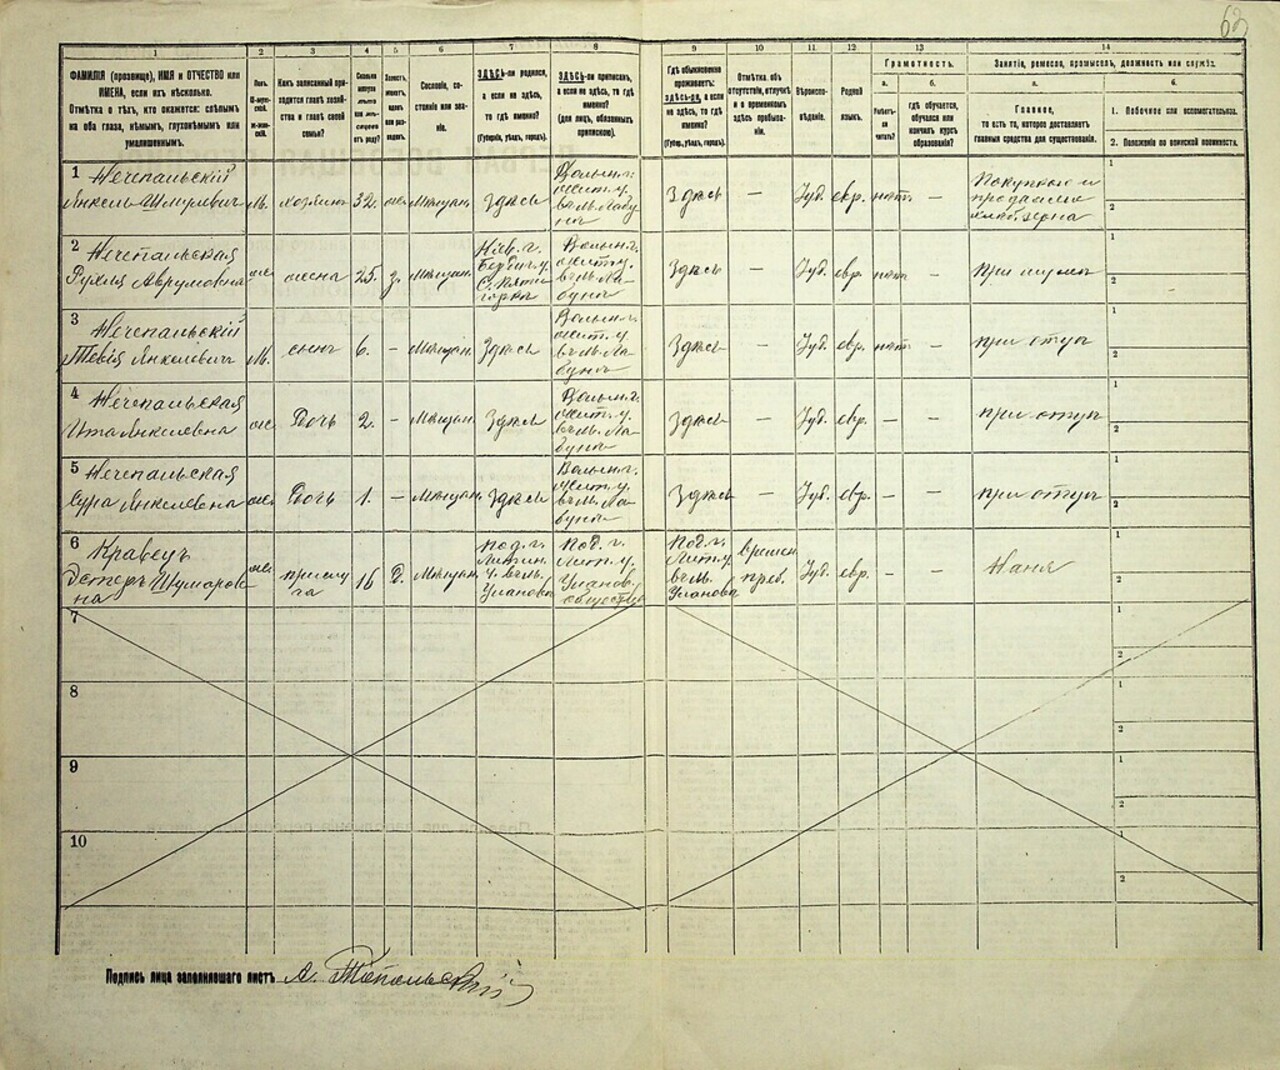 63
1 2 3 4 5 6 7 8 9 10 11 12 13 14
ФАМИЛІЯ (прозвище), ИМЯ и ОТЧЕСТВО или ИМЕНА, если ихъ нѣсколько.
Отмѣтка о тѣхъ, кто окажется: слѣпымъ на оба глаза, нѣмымъ, глухонѣмымъ или умалишеннымъ.
Полъ.
М-мужской.
Ж-женскій.
Какъ записанный приходится главѣ хозяйства и главѣ своей семьи?
Сколько минуло лѣтъ или мѣсяцевъ отъ роду?
Холостъ, женатъ, вдовъ или разведенъ.
Сословіе, состояніе или званіе.
ЗДѢСЬ-ли родился, а если не здѣсь, то гдѣ именно?
(Губернія, уѣздъ, городъ).
ЗДѢСЬ-ли приписанъ, а если не здѣсь, то гдѣ именно?
(для лицъ, обязанныхъ припискою).
Гдѣ обыкновенно проживаетъ: здѣсь-ли, а если не здѣсь, то гдѣ именно?
(Губер., уѣздъ, городъ).
Отмѣтка объ отсутствіи, отлучкѣ и о временномъ здѣсь пребываніи.
Вѣроисповѣданіе.
Родной языкъ.
Грамотность.
а. б.
Умѣетъ-ли читать?
гдѣ обучается, обучался или кончилъ курсъ образованія?
Занятіе, ремесло, промыселъ, должность или служба.
а. б.
Главное,
то есть то, которое доставляетъ главныя средства для существованія.
1. Побочное или вспомогательное.
2. Положеніе по воинской повинности.
1 Нечепальскій Янкель Шмулевич М. хозяинъ 32. жен. Мѣщан. Здѣсь Волын. г. Жит. у. въ м. Лабунь Здѣсь — Іуд. евр. нѣт. — Покупкою и продажею хлѣб. зерна
2 Нечепальская Рухля Аврумовна жен. жена 25. з. Мѣщан. Кіев. г. Бердич. у. С. Пятигорка Волын. г. Жит. у. въ м. Лабунь Здѣсь — Іуд. евр. нѣт — при мужѣ
3 Нечепальскій Тевія Янкелевичъ М. сынъ 6. — Мѣщан. Здѣсь Волын. г. Жит. у. въ м. Лабунь Здѣсь — Іуд. евр. нѣт — при отцѣ
4 Нечепальская Ита Янкелевна же. Дочь 2. — Мѣщан. Здѣсь Волын. г. Жит. у. въ м. Лабунь Здѣсь — Іуд. евр. — — при отцѣ
5 Нечепальская Сура Янкелевна жен. Дочь 1. — Мѣщан. Здѣсь Волын. г. Жит. у. въ м. Лабунь Здѣсь — Іуд. евр. — — при отцѣ
6 Кравецъ жен. прислуга 16 Д. Мѣщан. Под. г. Литин. у. въ м. Уланова Под. г. Лит. у. Уланов. общества Под. г. Лит. у. въ м. Уланова времен. преб. Іуд. евр. — — Няня
7
8
9
10
Подпись лица заполнявшаго листъ А. Топольскій